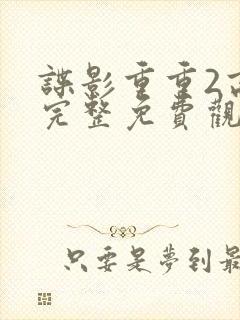 諜影重重2
完整免費觀
只要是夢到最